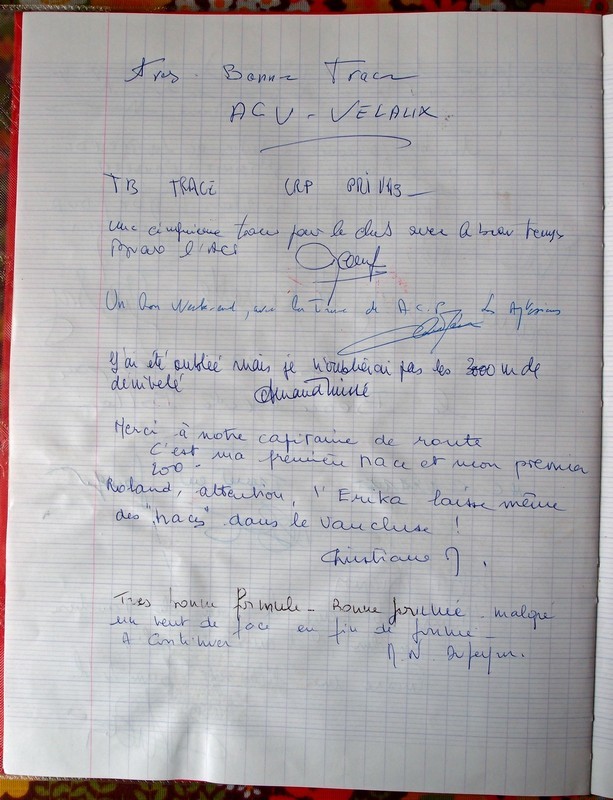 Tres Bonne Trace
ACV - VELAUX.
TB TRACE CRP PRIVAS
une cinquieme trace pour le club avec le beau temps
l'ACP
Un bon Week-end, sur la Trace de A.C.P. Les
J'ai été oubliée mais je n'oublierai pas les 3000 m de
denivelé
Merci à notre capitaine de route
C'est ma première trace et mon premier
200 -
Roland, attention, l'Erika laisse même
des "traces" dans le Vaucluse !
Christiane
Tres bonne formule - Bonne journée - malgré
un vent de face en fin de journée -
A Continuer